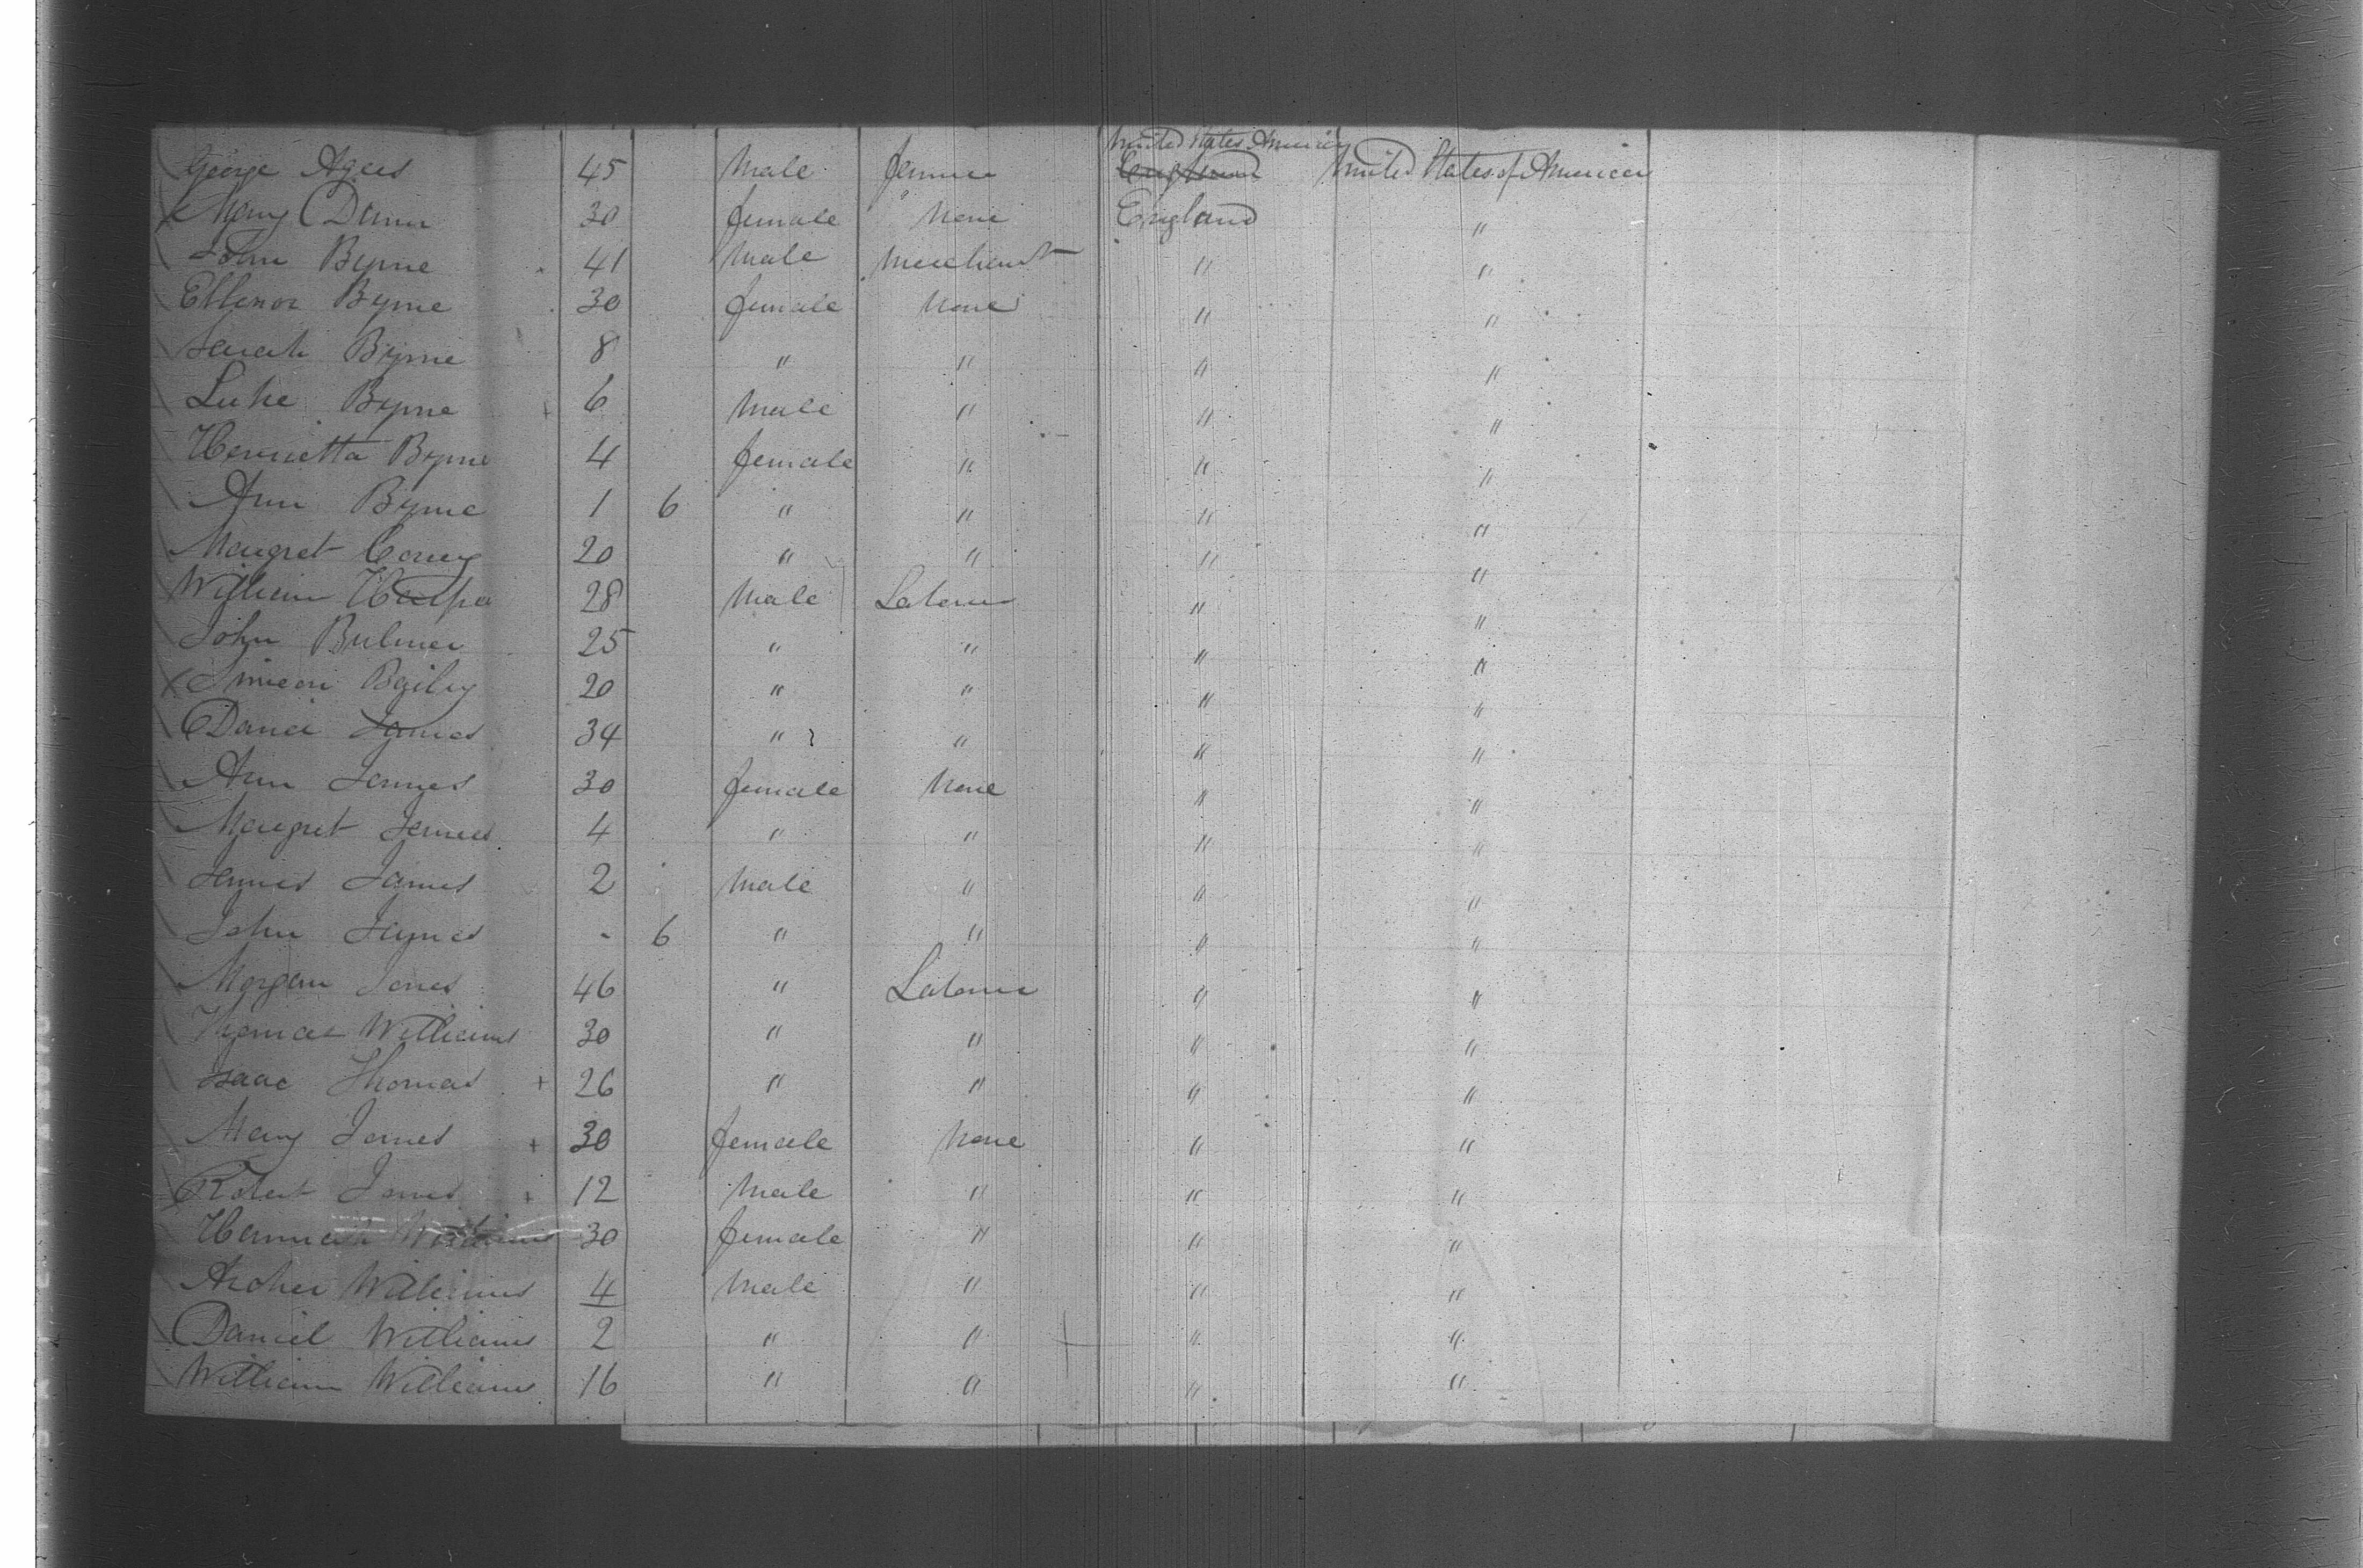 United States America
George Agus 45 Male Farmer England United States of America
Mary Dunn 30 female None England "
John Byrne 41 Male Merchant " "
Ellenor Byrne 30 female None " "
Sarah Byrne 8 " " " "
Luke Byrne 6 Male " " "
Henrietta Byrne 4 female " " "
Ann Byrne 1 6 " " " "
Margret 20 " " " "
William 28 Male Laborer " "
John Bulmer 25 " " " "
Simeon Baily 20 " " " "
Daniel James 34 " " " "
Ann James 30 female None " "
Margret James 4 " " " "
James James 2 Male " " "
John James - 6 " " " "
Morgan Jones 46 " Laborer " "
Thomas Williams 30 " " " "
Isaac Thomas + 26 " " " "
Mary James + 30 female None " "
Robert James + 12 Male " " "
Hannah Williams 30 female " " "
Archer Williams 4 Male " " "
Daniel Williams 2 " " " "
William Williams 16 " " " "